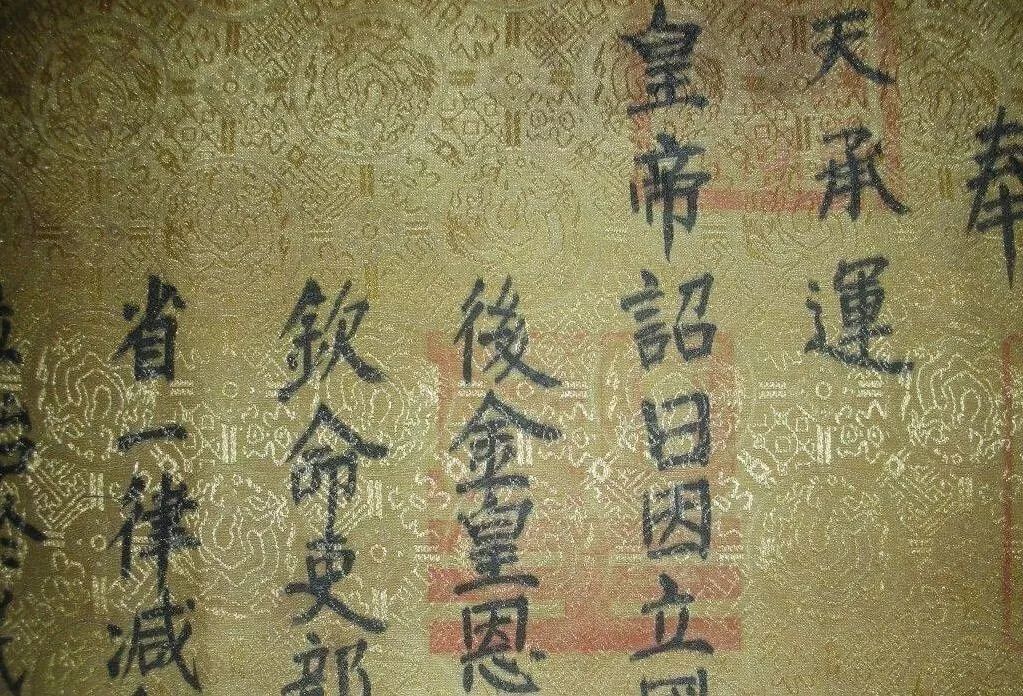 奉
天承運
皇帝詔曰因立國
後金皇恩
欽命吏部
省一律減